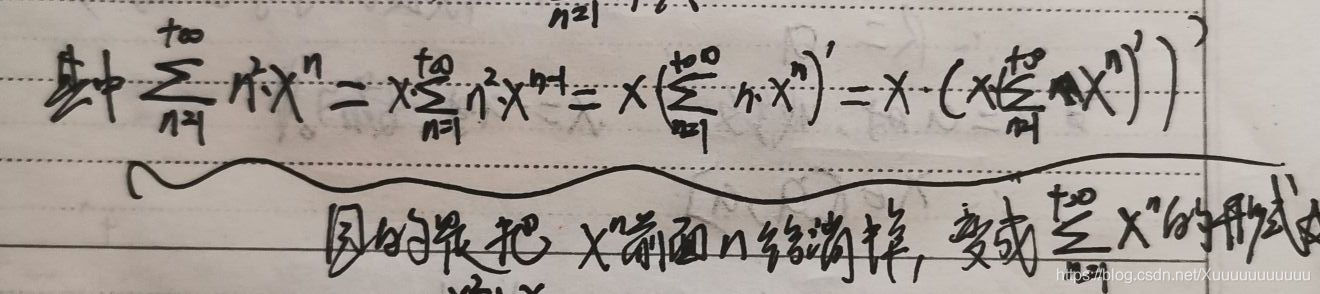 n=1
其中 $\sum_{n=1}^{+\infty} n^2 \cdot x^n = x \cdot \sum_{n=1}^{+\infty} n^2 \cdot x^{n-1} = x \left( \sum_{n=1}^{+\infty} n \cdot x^n \right)' = x \cdot \left( x \left( \sum_{n=1}^{+\infty} x^n \right)' \right)'$
目的是把 $x^n$ 前面n给消掉, 变成 $\sum_{n=1}^{+\infty} x^n$ 的形式
https://blog.csdn.net/Xuuuuuuuuuuu